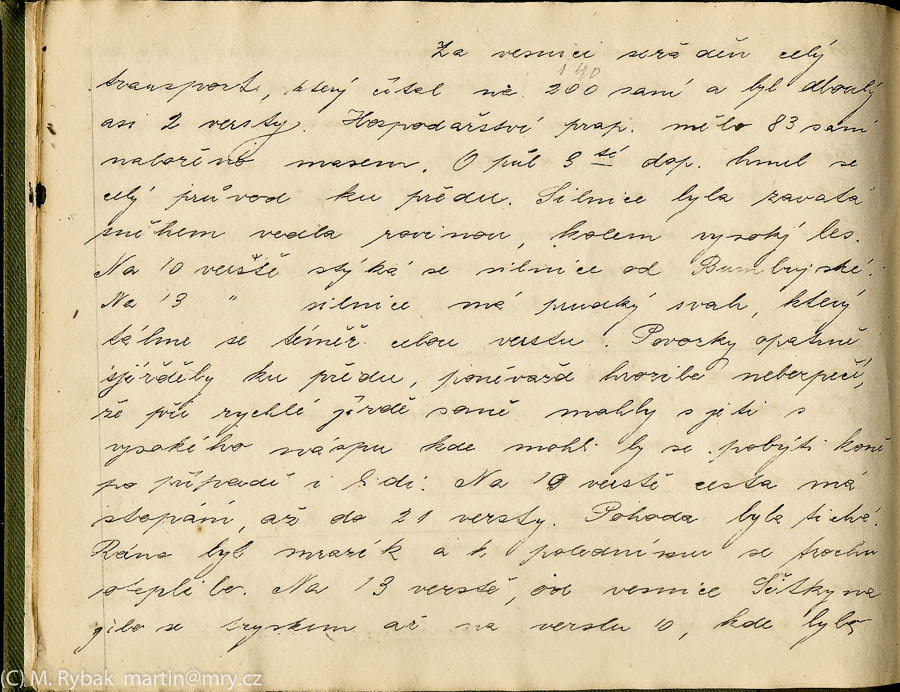 Za vesnici seřaděn celý
140
transport, který čítal na 200 saní a byl dlouhý
asi 2 versty. Hospodářství prap. mělo 83 saní
naloženo masem. O půl 9 té dop. hnul se
celý průvod ku předu. Silnice byla zavátá
sněhem vedla rovinou, kolem vysoký les.
Na 10 verstě stýká se silnice od
Na 13 " silnice má prudký svah, který
táhne se téměř celou verstu. Povozky opatrně
sjížděly ku předu, poněvadž hrozilo nebezpečí,
že při rychlé jízdě saně mohly sjeti s
vysokého náspu kde mohli by se pobýti koně
po případě i lidi. Na 19 verstě cesta má
stopání, až do 21 versty. Pohoda byla tichá.
Ráno byl mrazík a k polednímu se trochu
oteplilo. Na 13 verstě, od vesnice
jelo se tryskem až na verstu 10, kde bylo
(C) M. Rybak martin@mry.cz